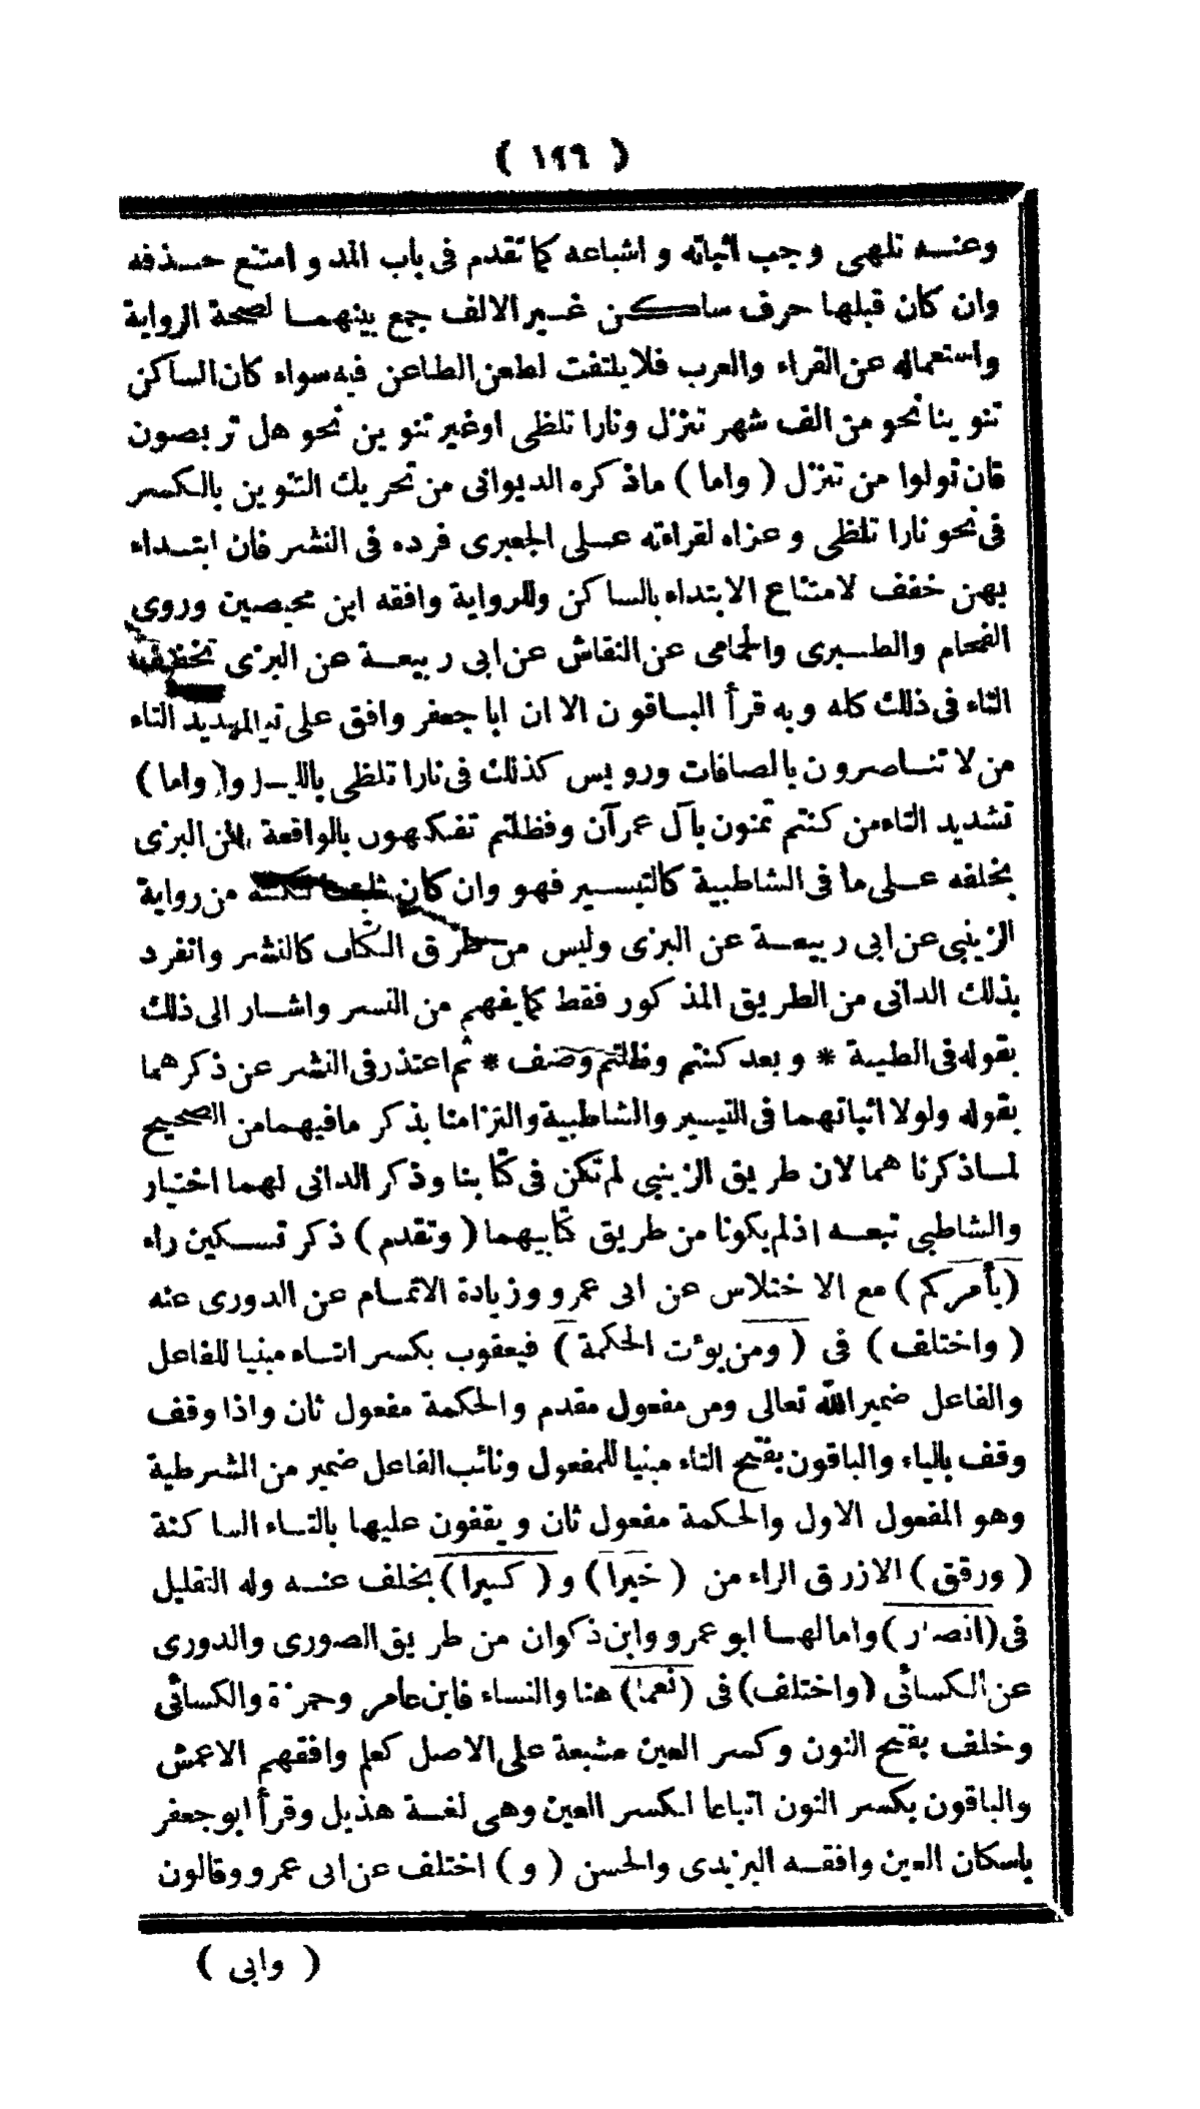 ( ١٩٦ )
وعنه تلهى وجب اثباته و اشباعه كما تقدم فى باب المد و امتنع حذفه
وان كان قبلها حرف ساكن غير الالف جمع بينهما لصحة الرواية
واستعماله عن القراء والعرب فلا يلتفت لطعن الطاعن فيه سواء كان الساكن
تنوينا نحو من الف شهر تنزل ونارا تلظى اوغير تنوين نحو هل تربصون
فان تولوا من تنزل ( واما ) ماذكره الديوانى من تحريك التنوين بالكسر
فى نحو نارا تلظى وعزاه لقراءته على الجعبرى فرده فى النشر فان ابتداء
بهن خفف لامتناع الابتداء بالساكن وللرواية وافقه ابن محيصين وروى
الفحام والطبرى والحمامى عن النقاش عن ابى ربيعة عن البزى تخفيف
التاء فى ذلك كله وبه قرأ الباقون الا ان ابا جعفر وافق على تشديد التاء
من لا تناصرون بالصافات ورويس كذلك فى نارا تلظى بالليل ( واما )
تشديد التاء من كنتم تمنون بآل عمرآن وفظلتم تفكهون بالواقعة عن البزى
بخلفه على ما فى الشاطبية كالتيسير فهو وان كان ثابتا لكنه من رواية
الزينبى عن ابى ربيعة عن البزى وليس من طرق الكتاب كالنشر وانفرد
بذلك الدانى من الطريق المذكور فقط كما يفهم من النسر واشار الى ذلك
بقوله فى الطيبة * وبعد كنتم وظلتم وصف * ثم اعتذر فى النشر عن ذكرهما
بقوله ولولا اثباتهما فى التيسير والشاطبية والتزامنا بذكر مافيهما من الصحيح
لما ذكرناهما لان طريق الزينبى لم تكن فى كتابنا وذكر الدانى لهما اختيار
والشاطبى تبعه اذلم يكونا من طريق كتابيهما ( وتقدم ) ذكر تسكين راء
( يأمركم ) مع الاختلاس عن ابى عمرو وزيادة الاتمام عن الدورى عنه
( واختلف ) فى ( ومن يوءت الحكمة ) فيعقوب بكسر التاء مبنيا للفاعل
والفاعل ضمير الله تعالى ومن مفعول مقدم والحكمة مفعول ثان واذا وقف
وقف بالياء والباقون بفتح التاء مبنيا للمفعول ونائب الفاعل ضمير من الشرطية
وهو المفعول الاول والحكمة مفعول ثان ويقفون عليها بالتاء الساكنة
( ورقق ) الازرق الراء من ( خيرا ) و ( كثيرا ) بخلف عنه وله التقليل
فى ( انصار ) وامالها ابو عمرو وابن ذكوان من طريق الصورى والدورى
عن الكسائى ( واختلف ) فى ( نعما ) هنا والنساء فابن عامر وحمزة والكسائى
وخلف بفتح النون وكسر العين مشبعة على الاصل كعلم وافقهم الاعمش
والباقون بكسر النون اتباعا لكسر العين وهى لغة هذيل وقرأ ابو جعفر
باسكان العين وافقه اليزيدى والحسن ( و ) اختلف عن ابى عمرو وقالون
( وابى )